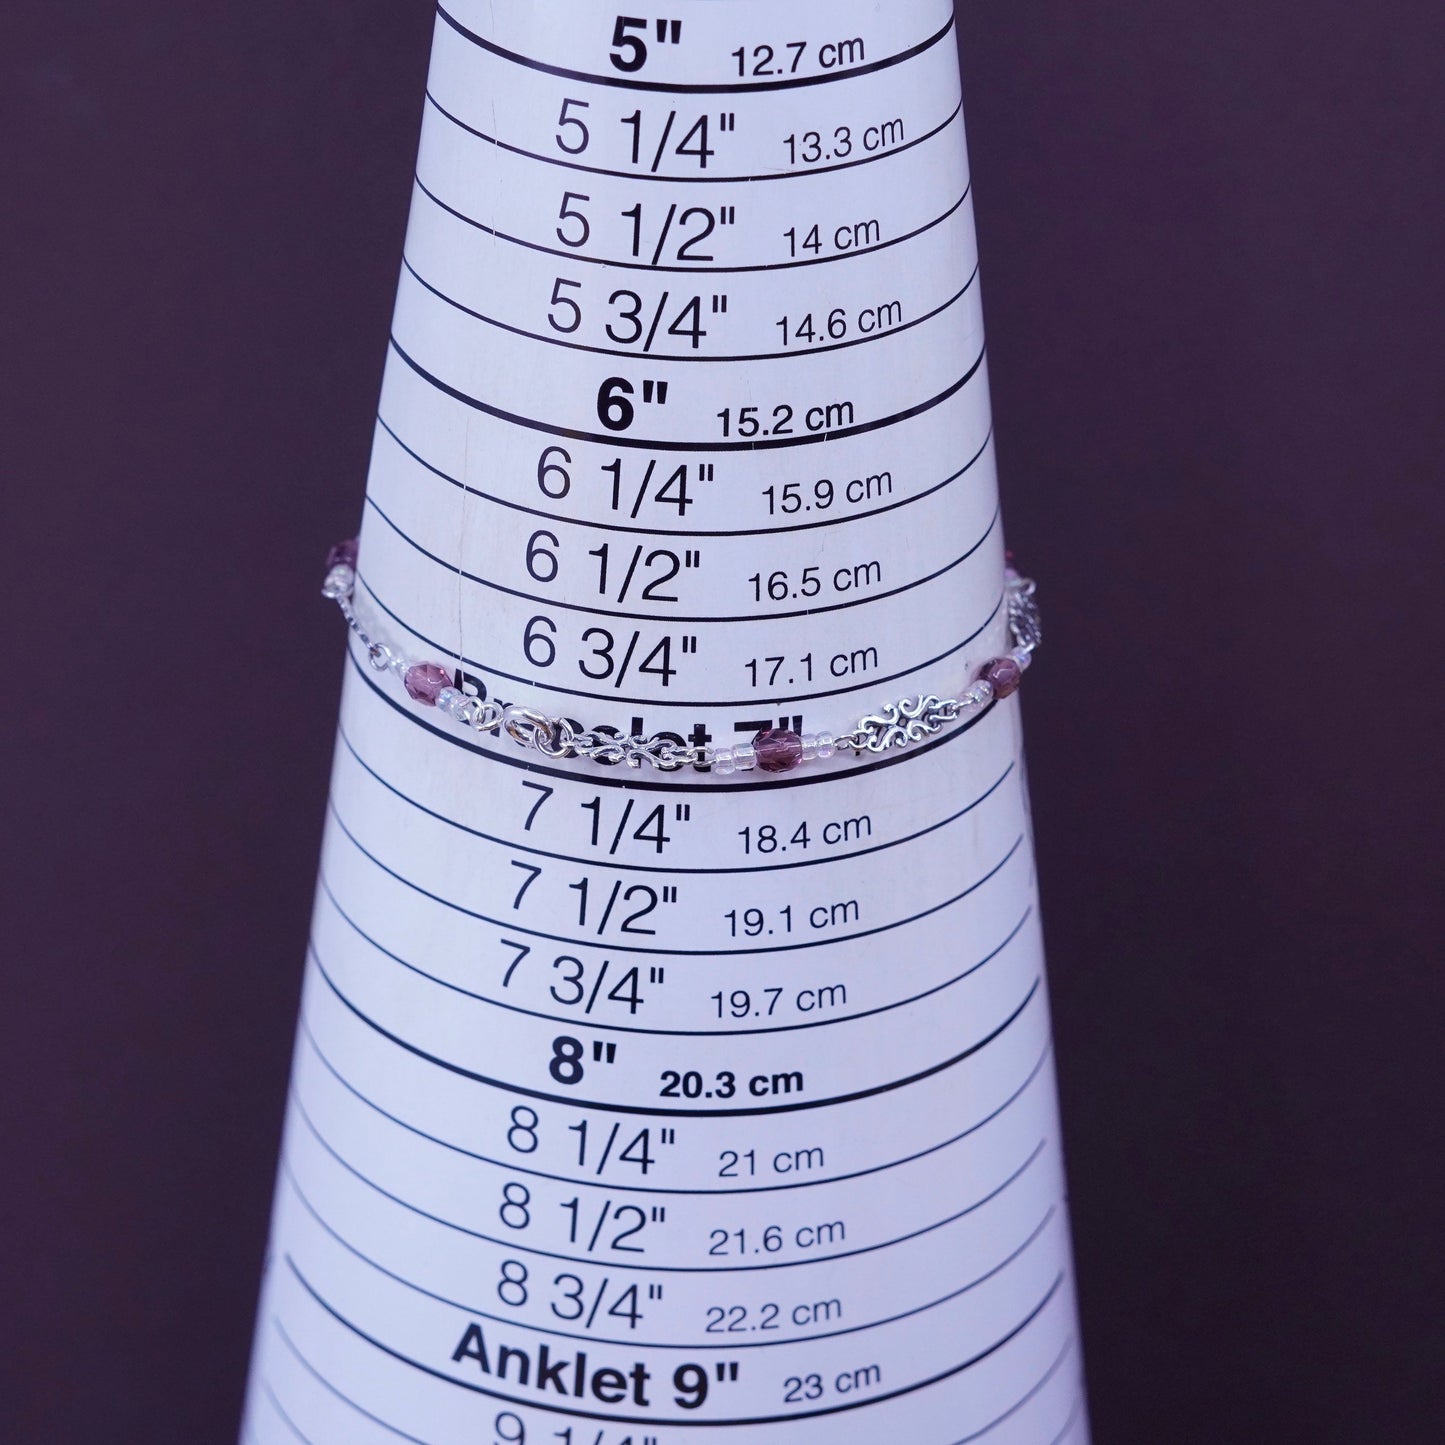 5" 12.7 cm
5 1/4" 13.3 cm
5 1/2" 14 cm
5 3/4" 14.6 cm
6" 15.2 cm
6 1/4" 15.9 cm
6 1/2" 16.5 cm
6 3/4" 17.1 cm
Bracelet 7"
7 1/4" 18.4 cm
7 1/2" 19.1 cm
7 3/4" 19.7 cm
8" 20.3 cm
8 1/4" 21 cm
8 1/2" 21.6 cm
8 3/4" 22.2 cm
Anklet 9" 23 cm
9 1/4"